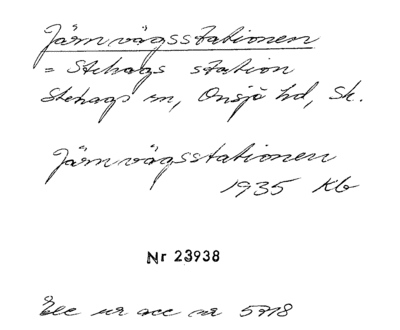 Järnvägsstationen
= Stehags station
Stehags sn, Onsjö hd, Sk.
Järnvägsstationen
1935 Kb
Nr 23938
Exc ur acc nr 5718